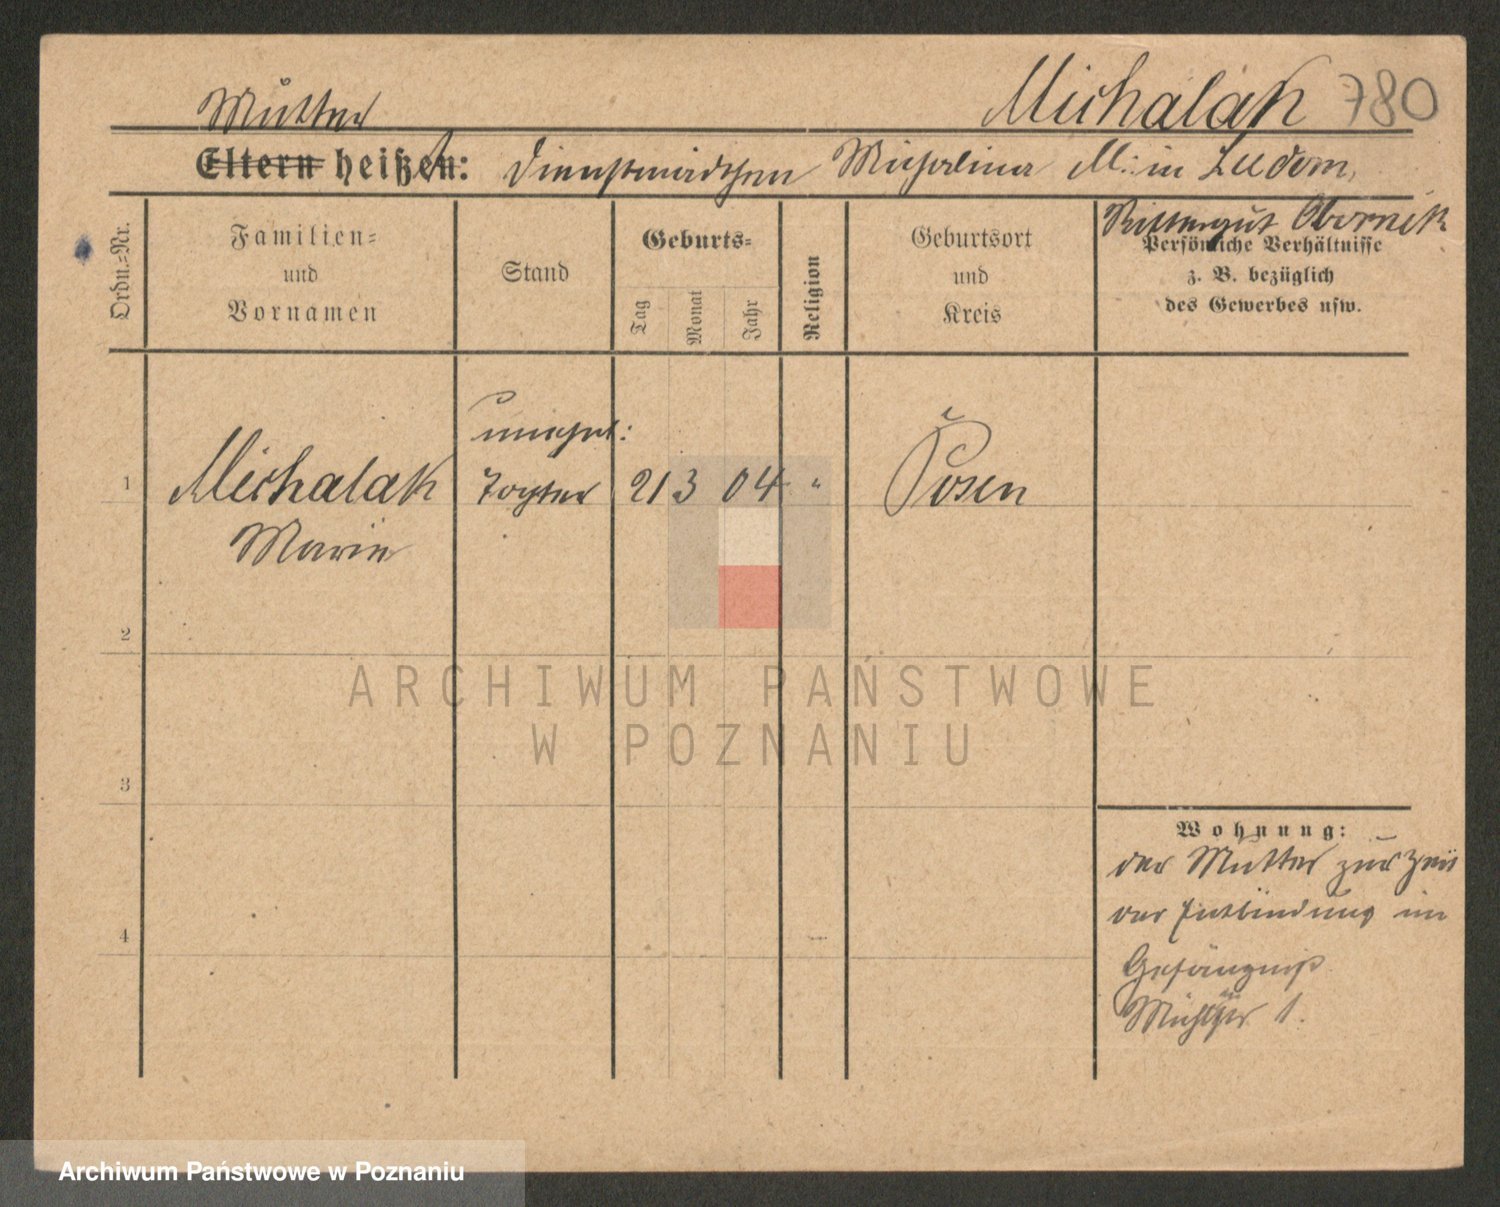 Michalak 780
Mutter
Eltern heißen: Dienstmädchen Michalina M: in Ludom,
Rittergut Obornik
Ordn.-Nr.
Familien-
und
Vornamen
Stand
Geburts-
Tag
Monat
Jahr
Religion
Geburtsort
und
Kreis
Persönliche Verhältnisse
z. B. bezüglich
des Gewerbes usw.
unehel:
1 Michalak Tochter 21 3 04 " Posen
Marie
2
3
4
ARCHIWUM PAŃSTWOWE
W POZNANIU
Wohnung:
der Mutter zur Zeit
der Entbindung im
Gefängniß
1.
Archiwum Państwowe w Poznaniu